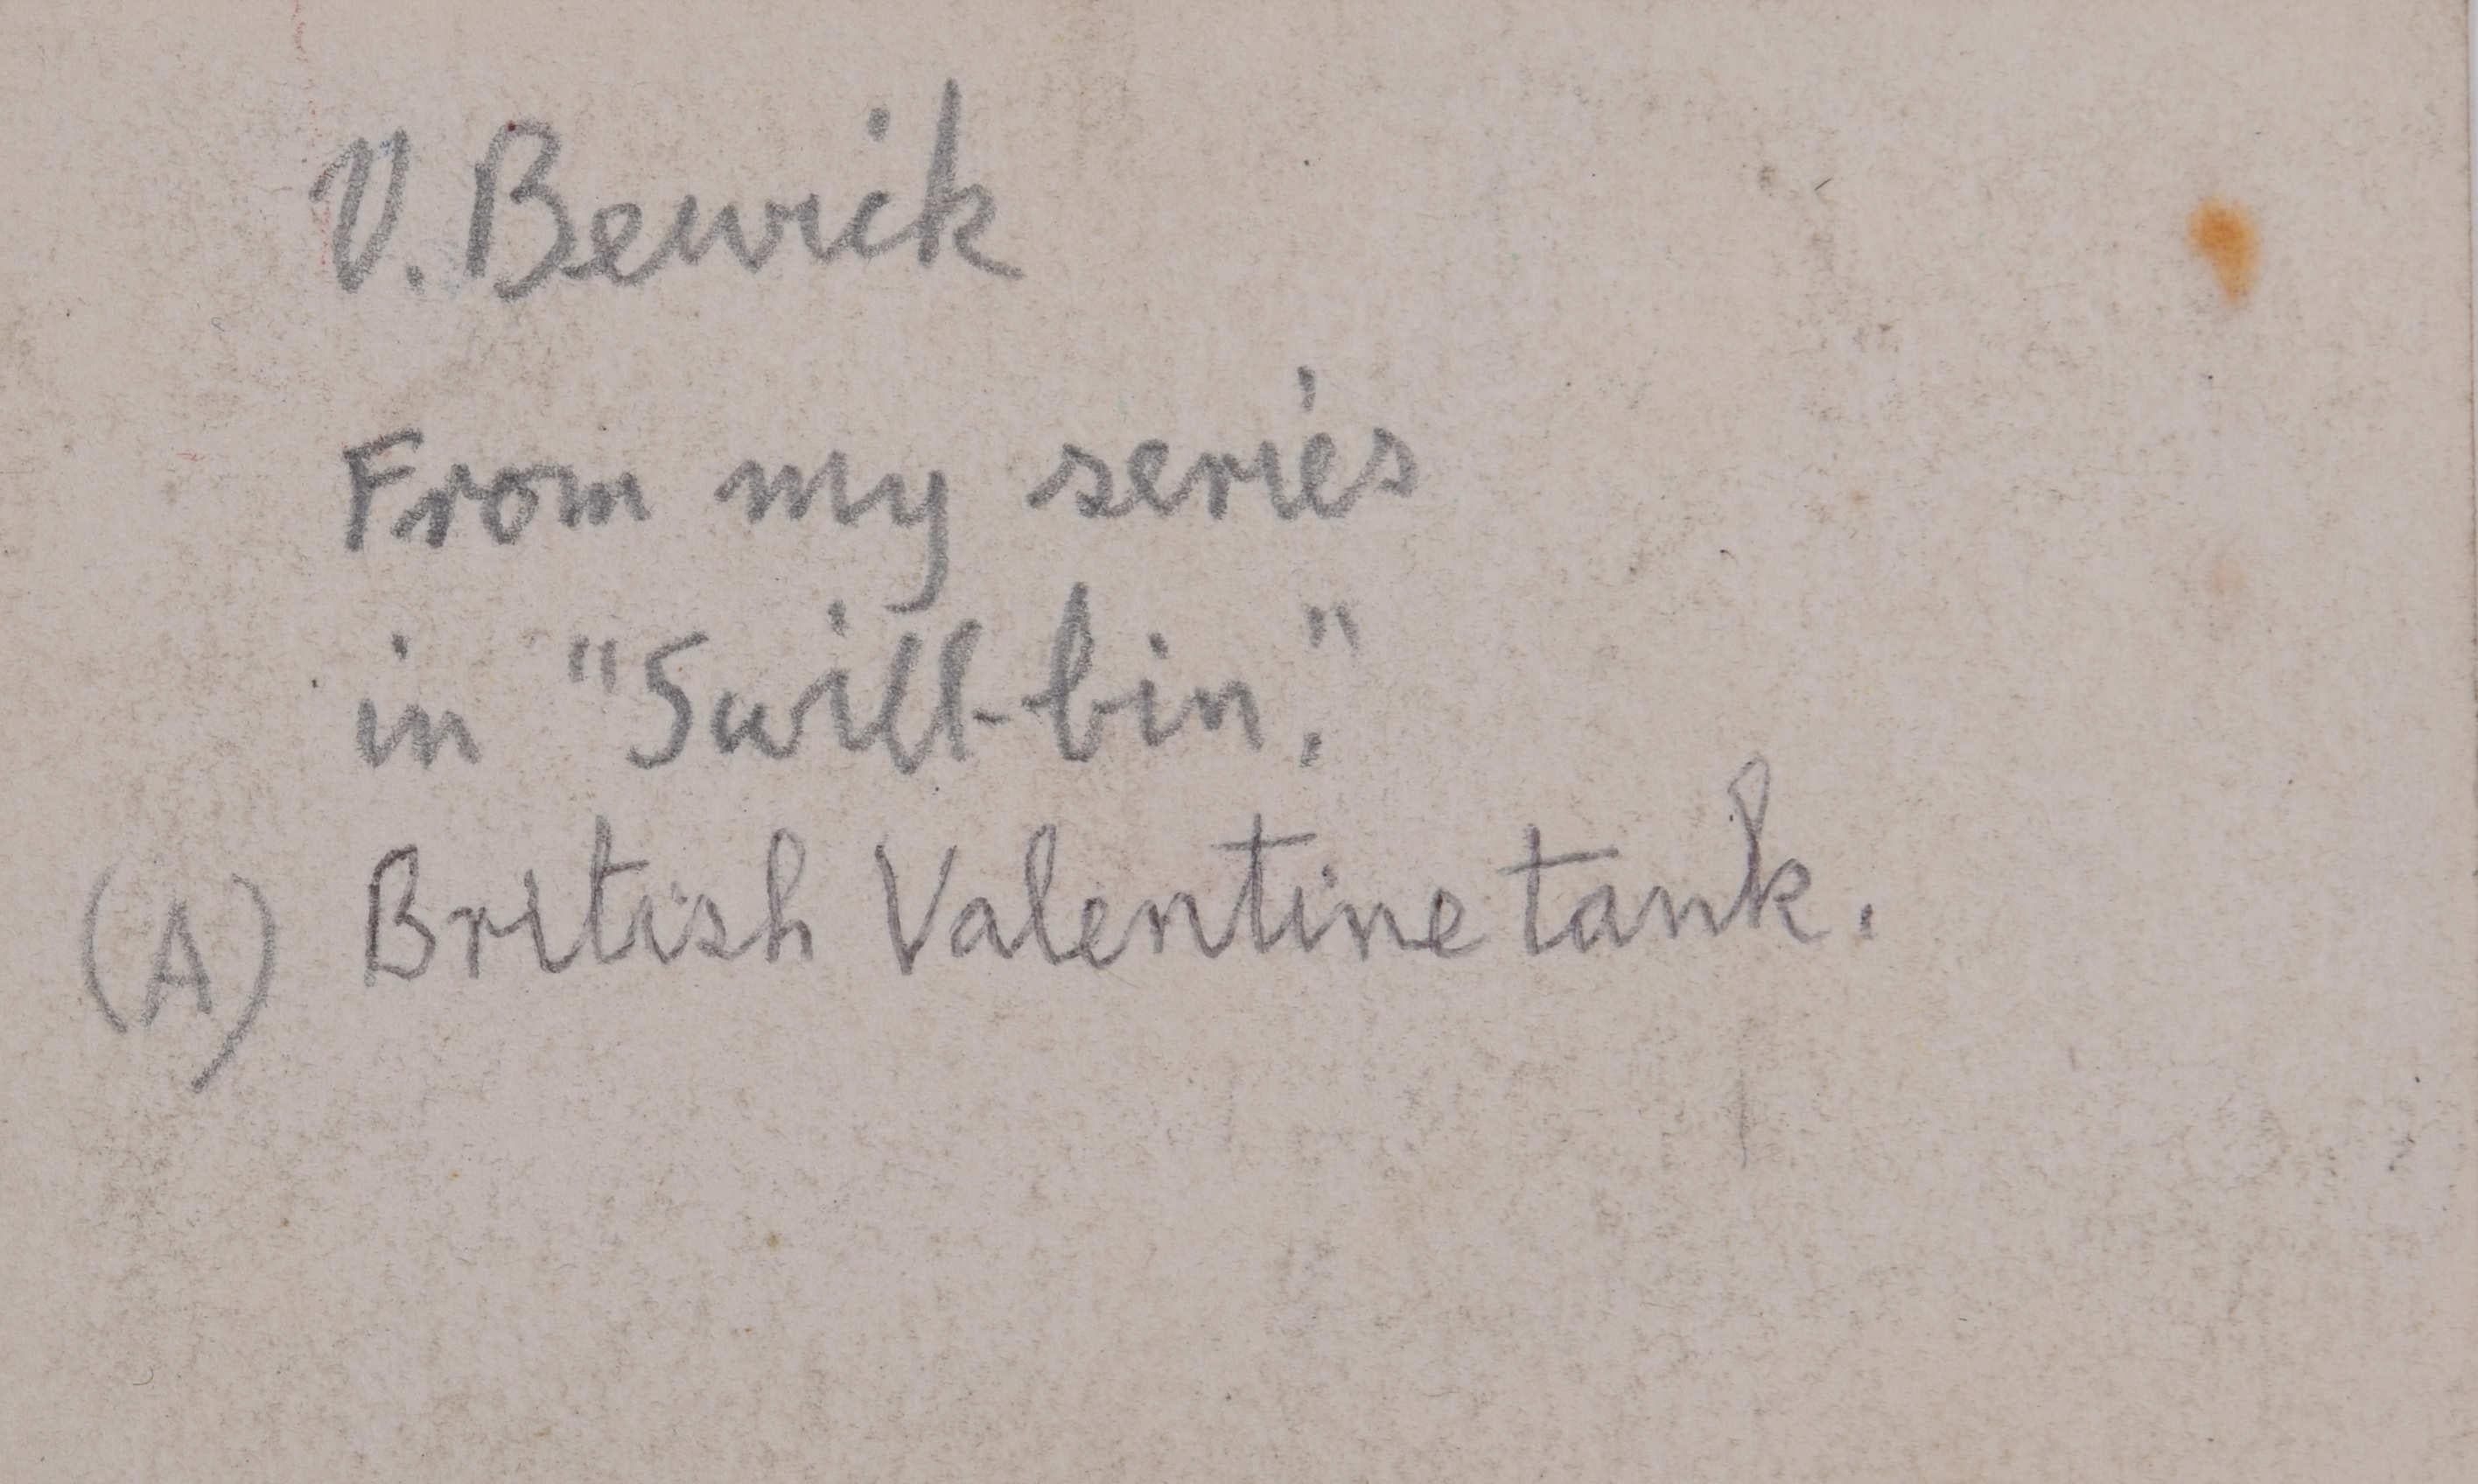 V. Bewick
From my series
in "Swill-bin."
(A) British Valentine tank.